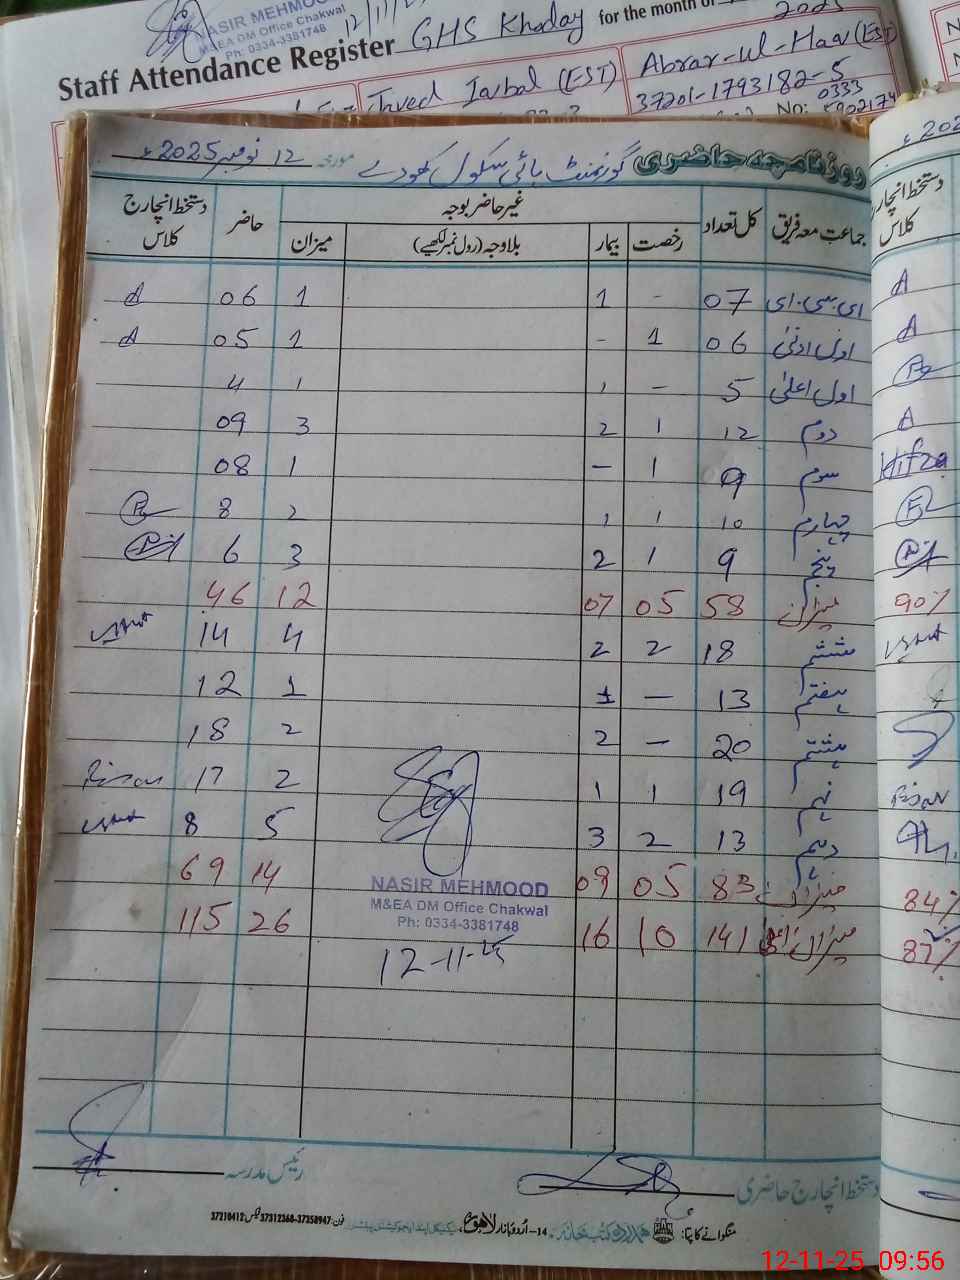 NASIR MEHMOOD
M&EA DM Office Chakwal
Ph: 0334-3381748
12/11/2
Staff Attendance Register GHS Khoday for the month of
2025
Javed Iqbal (EST)
Abrar-ul-Haq (EST)
37201-1793182-5
No: 0333
5902174
روزنامچہ حاضری گورنمنٹ ہائی سکول کھودے مورخہ 12 نومبر 2025ء
جماعت معہ فریق کل تعداد غیر حاضر بوجہ حاضر دستخط انچارج کلاس
رخصت بیمار بلاوجہ (رول نمبر لکھیے) میزان
ای سی ای 07 - 1 1 06
اول ادنیٰ 06 1 - 1 05
اول اعلیٰ 5 - 1 1 4
دوم 12 1 2 3 09
سوم 9 1 - 1 08
چہارم 10 1 1 2 8
پنجم 9 1 2 3 6
میزان 58 05 07 12 46
ششم 18 2 2 4 14
ہفتم 13 - 1 1 12
ہشتم 20 - 2 2 18
نہم 19 1 1 2 17
دہم 13 2 3 5 8
میزان 83 05 09 14 69
میزان 141 10 16 26 115
NASIR MEHMOOD
M&EA DM Office Chakwal
Ph: 0334-3381748
12-11-25
دستخط انچارج حاضری
رئیس مدرسہ
منگوانے کا پتا: ہمدرد کتب خانہ 14-اُردو بازار لاہور
فون: 37358947-37312360 فیکس: 37210412
دستخط انچارج
کلاس
Hifza
90%
84%
87%
12-11-25 09:56